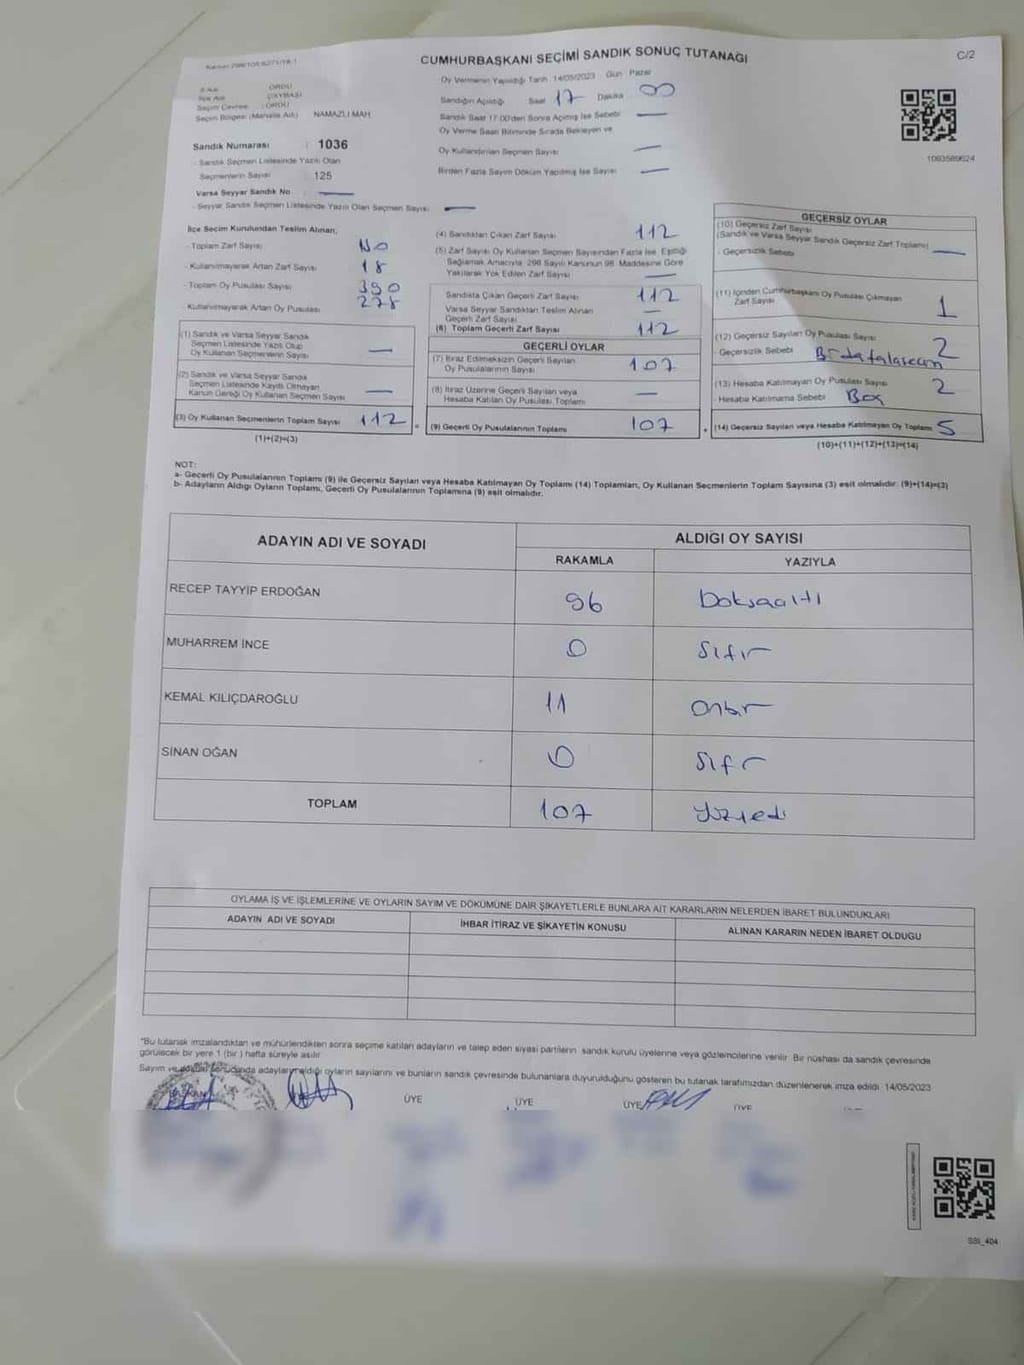 CUMHURBAŞKANI SEÇİMİ SANDIK SONUÇ TUTANAĞI
C/2
Oy Vermenin Yapıldığı Tarih 14/05/2023 Gün: Pazar
Sandığın Açıldığı Saat 17 Dakika 00
Sandık Saat 17.00'den Sonra Açılmış İse Sebebi
Oy Verme Saati Bitiminde Sırada Bekleyen ve
Oy Kullandırılan Seçmen Sayısı
Birden Fazla Sayım Döküm Yapılmış İse Sayısı
İl Adı ORDU
İlçe Adı ÇAYBAŞI
Seçim Çevresi : ORDU
Seçim Bölgesi (Mahalle Adı) NAMAZLI MAH.
Sandık Numarası : 1036
- Sandık Seçmen Listesinde Yazılı Olan
Seçmenlerin Sayısı 125
Varsa Seyyar Sandık No
- Seyyar Sandık Seçmen Listesinde Yazılı Olan Seçmen Sayısı
1093589624
İlçe Seçim Kurulundan Teslim Alınan;
- Toplam Zarf Sayısı
- Kullanılmayarak Artan Zarf Sayısı 18
- Toplam Oy Pusulası Sayısı 390
- Kullanılmayarak Artan Oy Pusulası 278
(1) Sandık ve Varsa Seyyar Sandık
Seçmen Listesinde Yazılı Olup
Oy Kullanan Seçmenlerin Sayısı
(2) Sandık ve Varsa Seyyar Sandık
Seçmen Listesinde Kayıtlı Olmayan
Kanun Gereği Oy Kullanan Seçmen Sayısı
(3) Oy Kullanan Seçmenlerin Toplam Sayısı 112
(1)+(2)=(3)
(4) Sandıktan Çıkan Zarf Sayısı 112
(5) Zarf Sayısı Oy Kullanan Seçmen Sayısından Fazla İse, Eşitliği
Sağlamak Amacıyla, 298 Sayılı Kanunun 98. Maddesine Göre
Yakılarak Yok Edilen Zarf Sayısı
Sandıkta Çıkan Geçerli Zarf Sayısı 112
Varsa Seyyar Sandıktan Teslim Alınan
Geçerli Zarf Sayısı
(6) Toplam Geçerli Zarf Sayısı 112
GEÇERLİ OYLAR
(7) İtiraz Edilmeksizin Geçerli Sayılan
Oy Pusulalarının Sayısı 107
(8) İtiraz Üzerine Geçerli Sayılan veya
Hesaba Katılan Oy Pusulası Toplamı
(9) Geçerli Oy Pusulalarının Toplamı 107
GEÇERSİZ OYLAR
(10) Geçersiz Zarf Sayısı
(Sandık ve Varsa Seyyar Sandık Geçersiz Zarf Toplamı)
- Geçersizlik Sebebi
(11) İçinden Cumhurbaşkanı Oy Pusulası Çıkmayan
Zarf Sayısı 1
(12) Geçersiz Sayılan Oy Pusulası Sayısı 2
- Geçersizlik Sebebi
(13) Hesaba Katılmayan Oy Pusulası Sayısı 2
- Hesaba Katılmama Sebebi Boş
(14) Geçersiz Sayılan veya Hesaba Katılmayan Oy Toplamı 5
(10)+(11)+(12)+(13)=(14)
NOT:
a- Geçerli Oy Pusulalarının Toplamı (9) ile Geçersiz Sayılan veya Hesaba Katılmayan Oy Toplamı (14) Toplamları, Oy Kullanan Seçmenlerin Toplam Sayısına (3) eşit olmalıdır. (9)+(14)=(3)
b- Adayların Aldığı Oyların Toplamı, Geçerli Oy Pusulalarının Toplamına (9) eşit olmalıdır.
ADAYIN ADI VE SOYADI ALDIĞI OY SAYISI
RAKAMLA YAZIYLA
RECEP TAYYİP ERDOĞAN 96 Doksanaltı
MUHARREM İNCE 0 Sıfır
KEMAL KILIÇDAROĞLU 11 Onbir
SİNAN OĞAN 0 Sıfır
TOPLAM 107 Yüzyedi
OYLAMA İŞ VE İŞLEMLERİNE VE OYLARIN SAYIM VE DÖKÜMÜNE DAİR ŞİKAYETLERLE BUNLARA AİT KARARLARIN NELERDEN İBARET BULUNDUKLARI
ADAYIN ADI VE SOYADI İHBAR İTİRAZ VE ŞİKAYETİN KONUSU ALINAN KARARIN NEDEN İBARET OLDUĞU
"Bu tutanak imzalandıktan ve mühürlendikten sonra seçime katılan adayların ve talep eden siyasi partilerin sandık kurulu üyelerine veya gözlemcilerine verilir. Bir nüshası da sandık çevresinde
görülecek bir yere 1 (bir) hafta süreyle asılır.
Sayım ve döküm sonucunda adayların aldığı oyların sayılarını ve bunların sandık çevresinde bulunanlara duyurulduğunu gösteren bu tutanak tarafımızdan düzenlenerek imza edildi. 14/05/2023
BAŞKAN ÜYE ÜYE ÜYE ÜYE
SSI_404